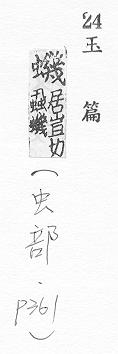 24
玉篇
蟣居豈切
蝨蟣
(虫部.p361)